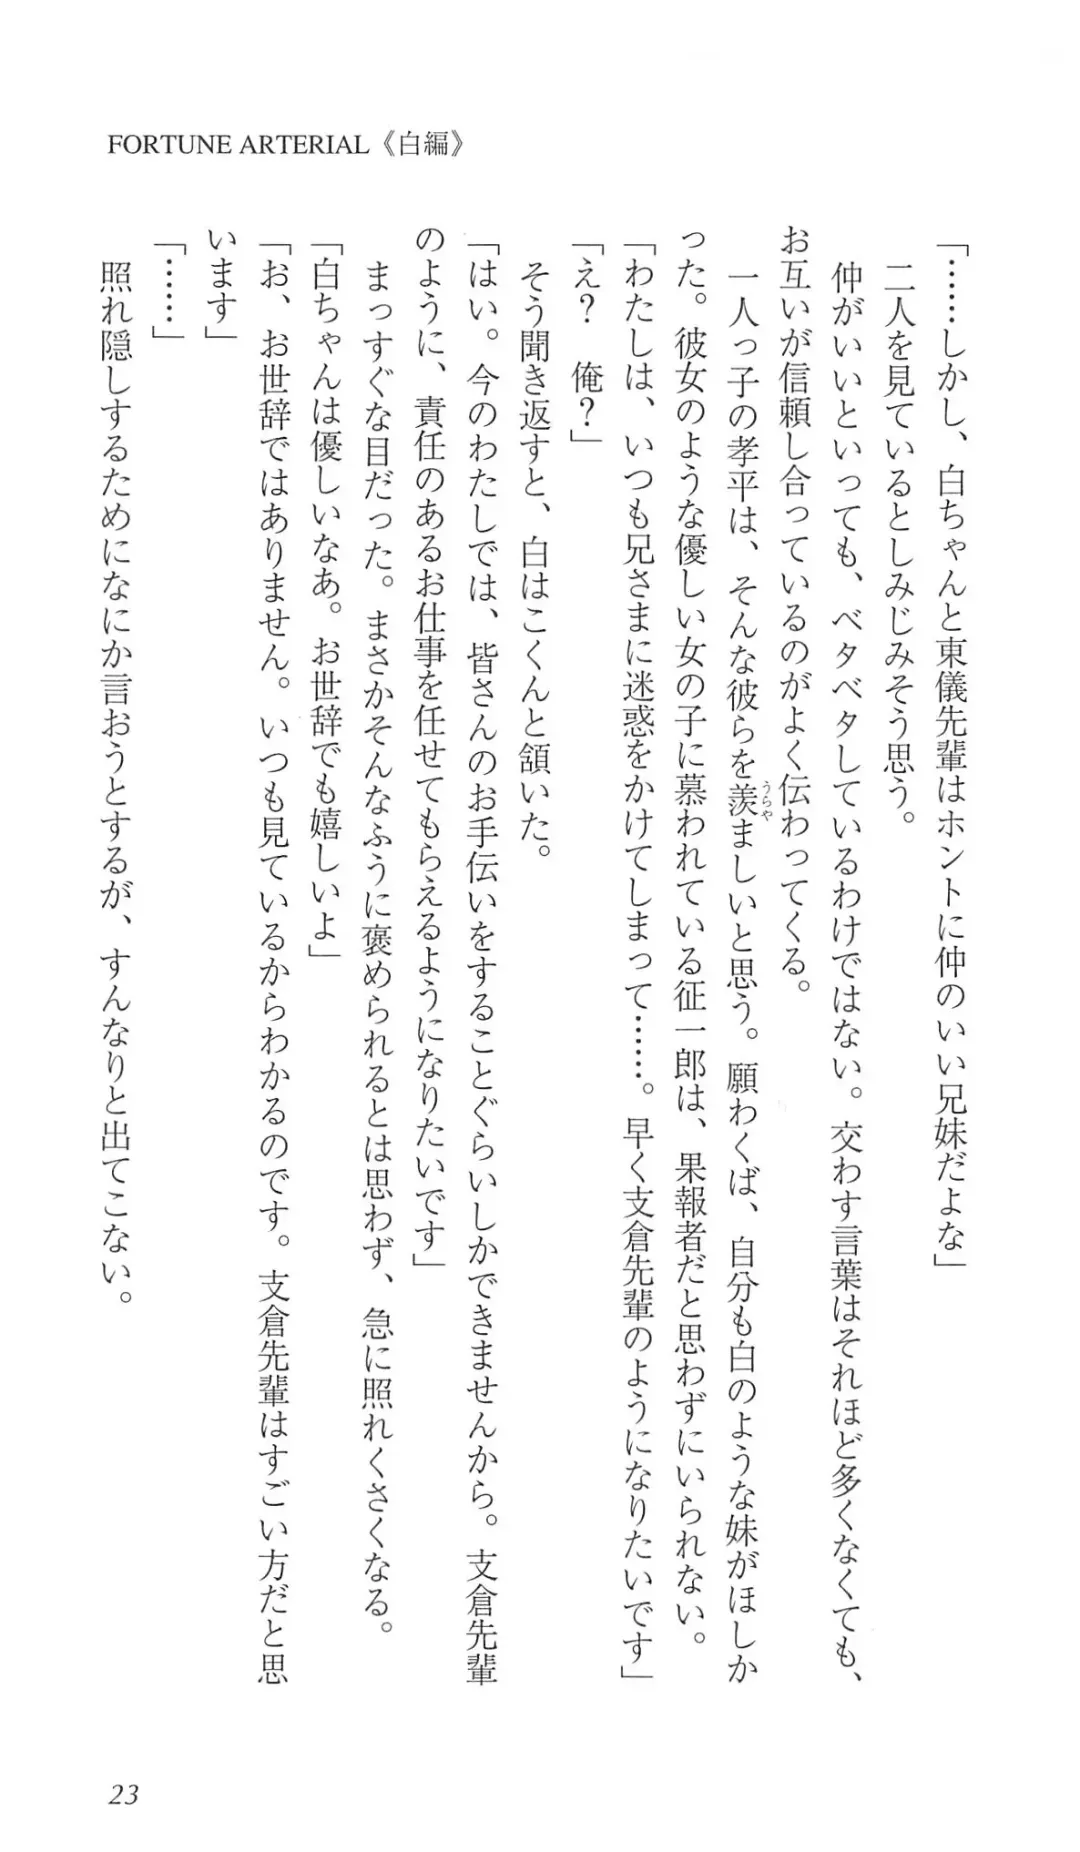 FORTUNE ARTERIAL《白編》
「……しかし、白ちゃんと東儀先輩はホントに仲のいい兄妹だよな」
二人を見ているとしみじみそう思う。
仲がいいといっても、ベタベタしているわけではない。交わす言葉はそれほど多くなくても、
お互いが信頼し合っているのがよく伝わってくる。
一人っ子の孝平は、そんな彼らを羨ましいと思う。願わくば、自分も白のような妹がほしか
うらや
った。彼女のような優しい女の子に慕われている征一郎は、果報者だと思わずにいられない。
「わたしは、いつも兄さまに迷惑をかけてしまって……。早く支倉先輩のようになりたいです」
「え？　俺？」
そう聞き返すと、白はこくんと頷いた。
「はい。今のわたしでは、皆さんのお手伝いをすることぐらいしかできませんから。支倉先輩
のように、責任のあるお仕事を任せてもらえるようになりたいです」
まっすぐな目だった。まさかそんなふうに褒められるとは思わず、急に照れくさくなる。
「白ちゃんは優しいなあ。お世辞でも嬉しいよ」
「お、お世辞ではありません。いつも見ているからわかるのです。支倉先輩はすごい方だと思
います」
「……」
照れ隠しするためになにか言おうとするが、すんなりと出てこない。
23